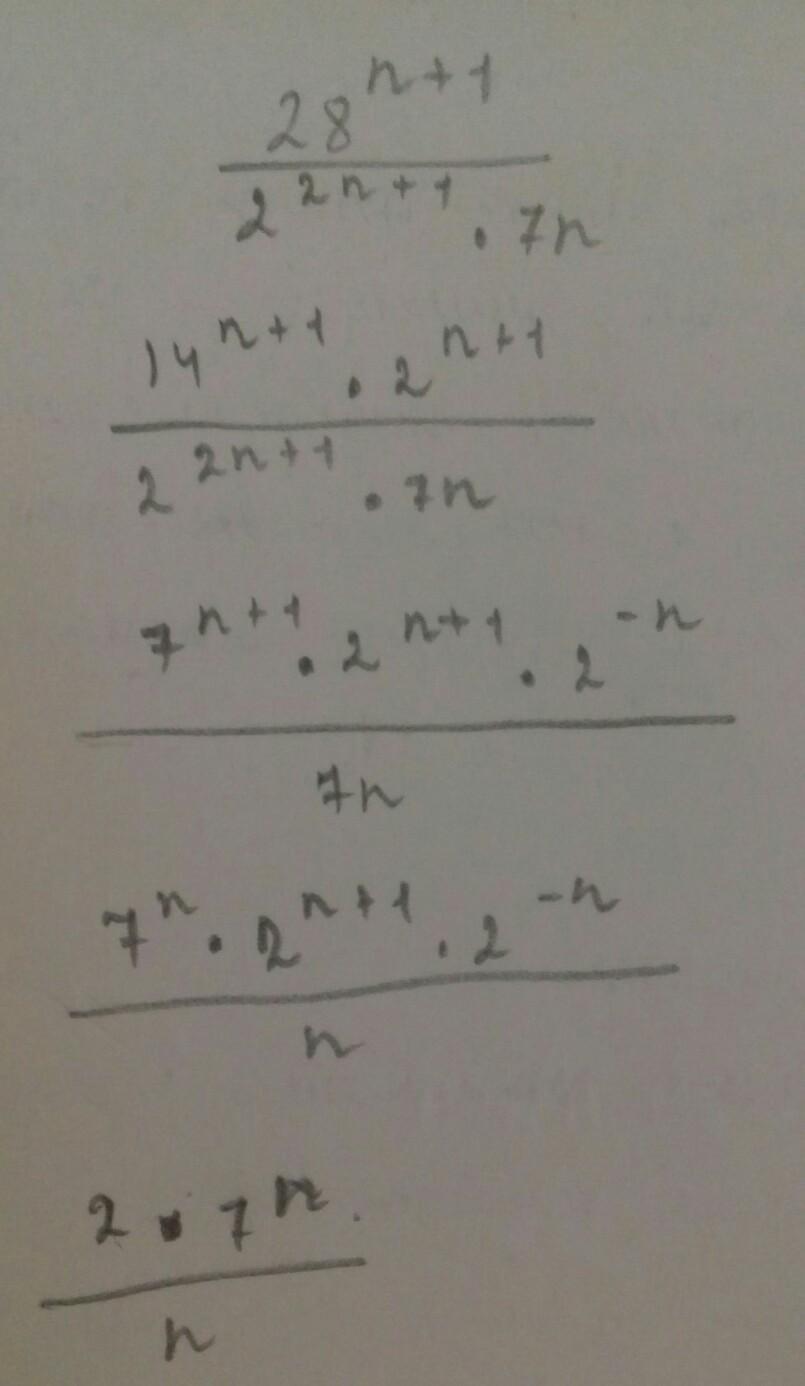 28^{n+1}
2^{2n+1} . 7n
14^{n+1} . 2^{n+1}
2^{2n+1} . 7n
7^{n+1} . 2^{n+1} . 2^{-n}
7n
7^{n} . 2^{n+1} . 2^{-n}
n
2 . 7^{n}
n